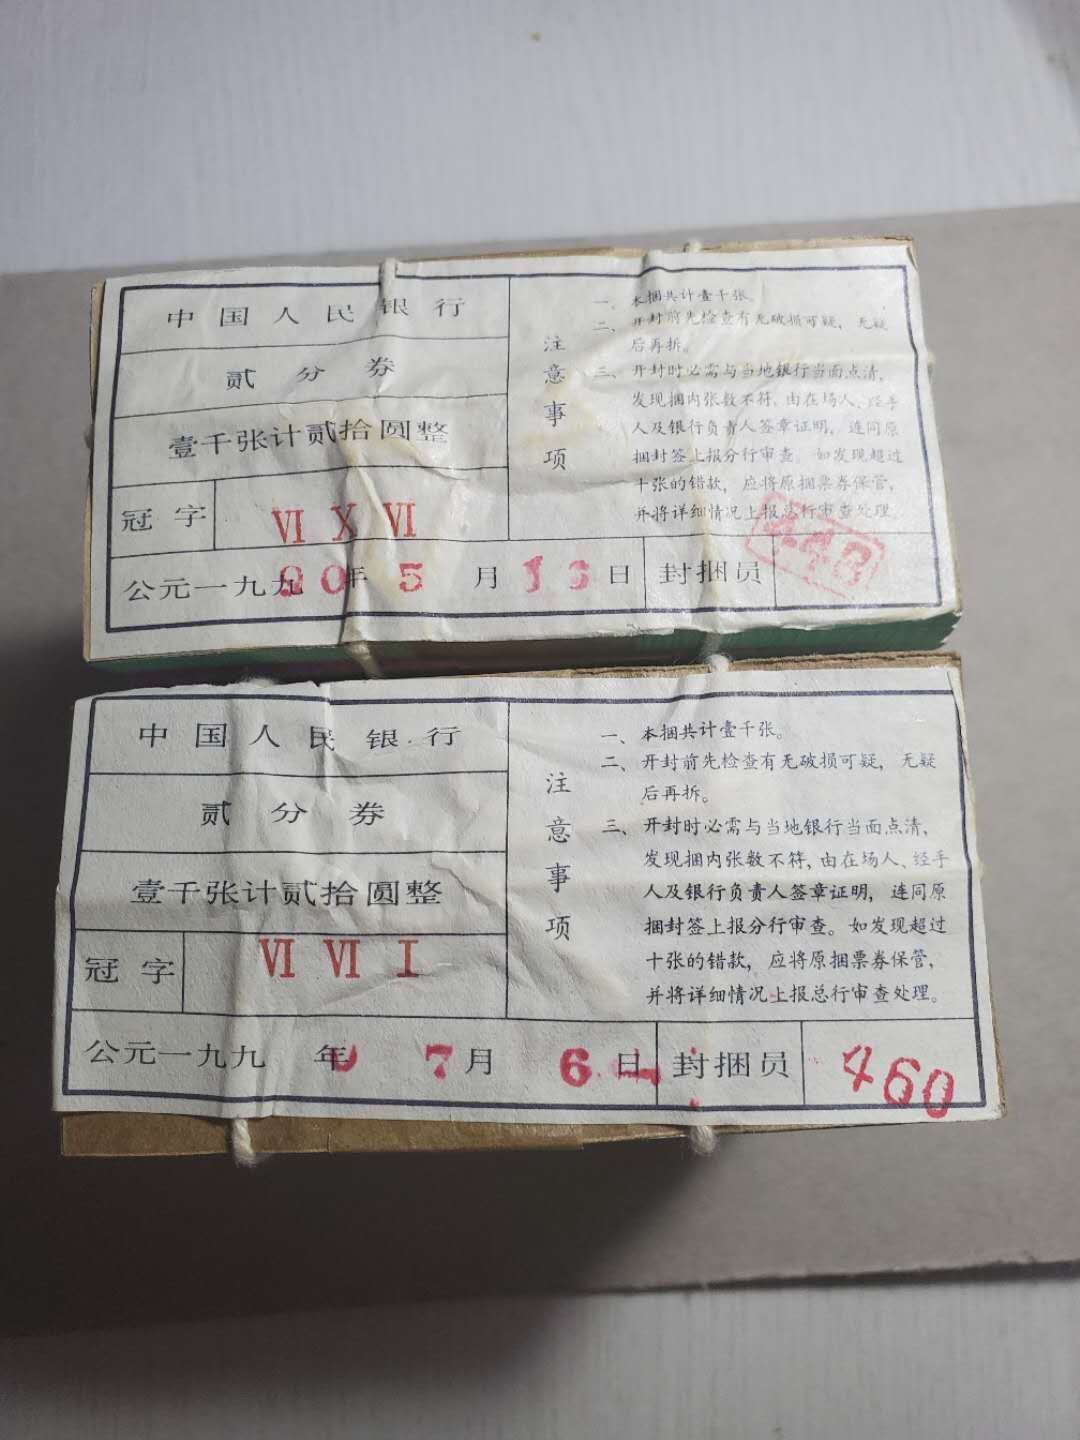 中国人民银行
贰分券
壹千张计贰拾圆整
冠字 Ⅵ Ⅹ Ⅵ
公元一九九 90年 5月 16日 封捆员
注意事项
一、本捆共计壹千张。
二、开封前先检查有无破损可疑，无疑
后再拆。
三、开封时必需与当地银行当面点清，
发现捆内张数不符，由在场人、经手
人及银行负责人签章证明，连同原
捆封签上报分行审查。如发现超过
十张的错款，应将原捆票券保管，
并将详细情况上报总行审查处理
中国人民银行
贰分券
壹千张计贰拾圆整
冠字 Ⅵ Ⅵ Ⅰ
公元一九九 年 7月 6日 封捆员 460
注意事项
一、本捆共计壹千张。
二、开封前先检查有无破损可疑，无疑
后再拆。
三、开封时必需与当地银行当面点清，
发现捆内张数不符，由在场人、经手
人及银行负责人签章证明，连同原
捆封签上报分行审查。如发现超过
十张的错款，应将原捆票券保管，
并将详细情况上报总行审查处理。